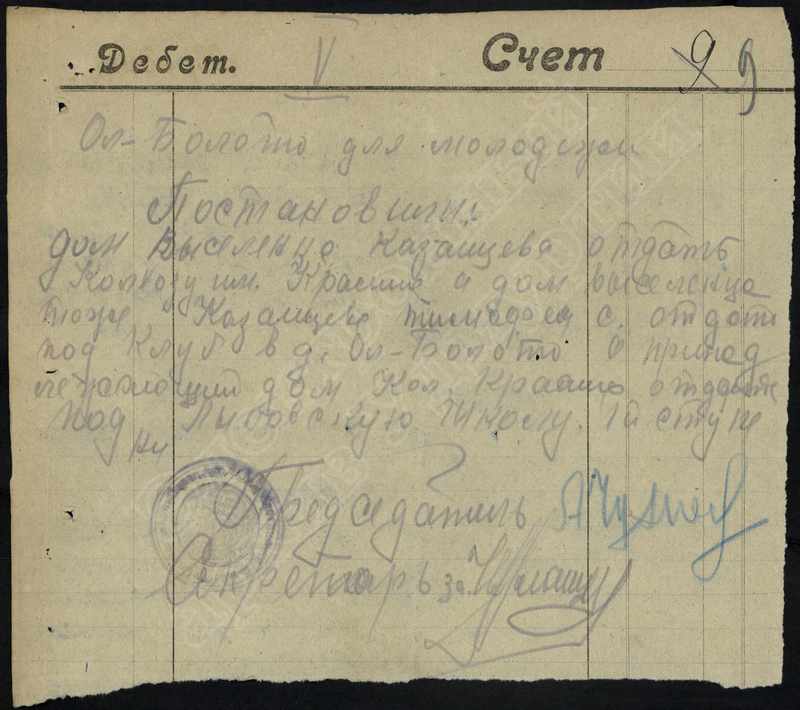 Дебет. V Счет 9 9
Ол-Болото для молодежи
Постановили:
дом выселенца Казанцева отдать
Колхозу им. Красина а дом выселенца
тоже Казанцева с. отдать
под Клуб в д. Ол-Болото а принад
лежащий дом Кол. Красина отдать
под Школу. 1й ступе
ни
Председатель
Секретарь за